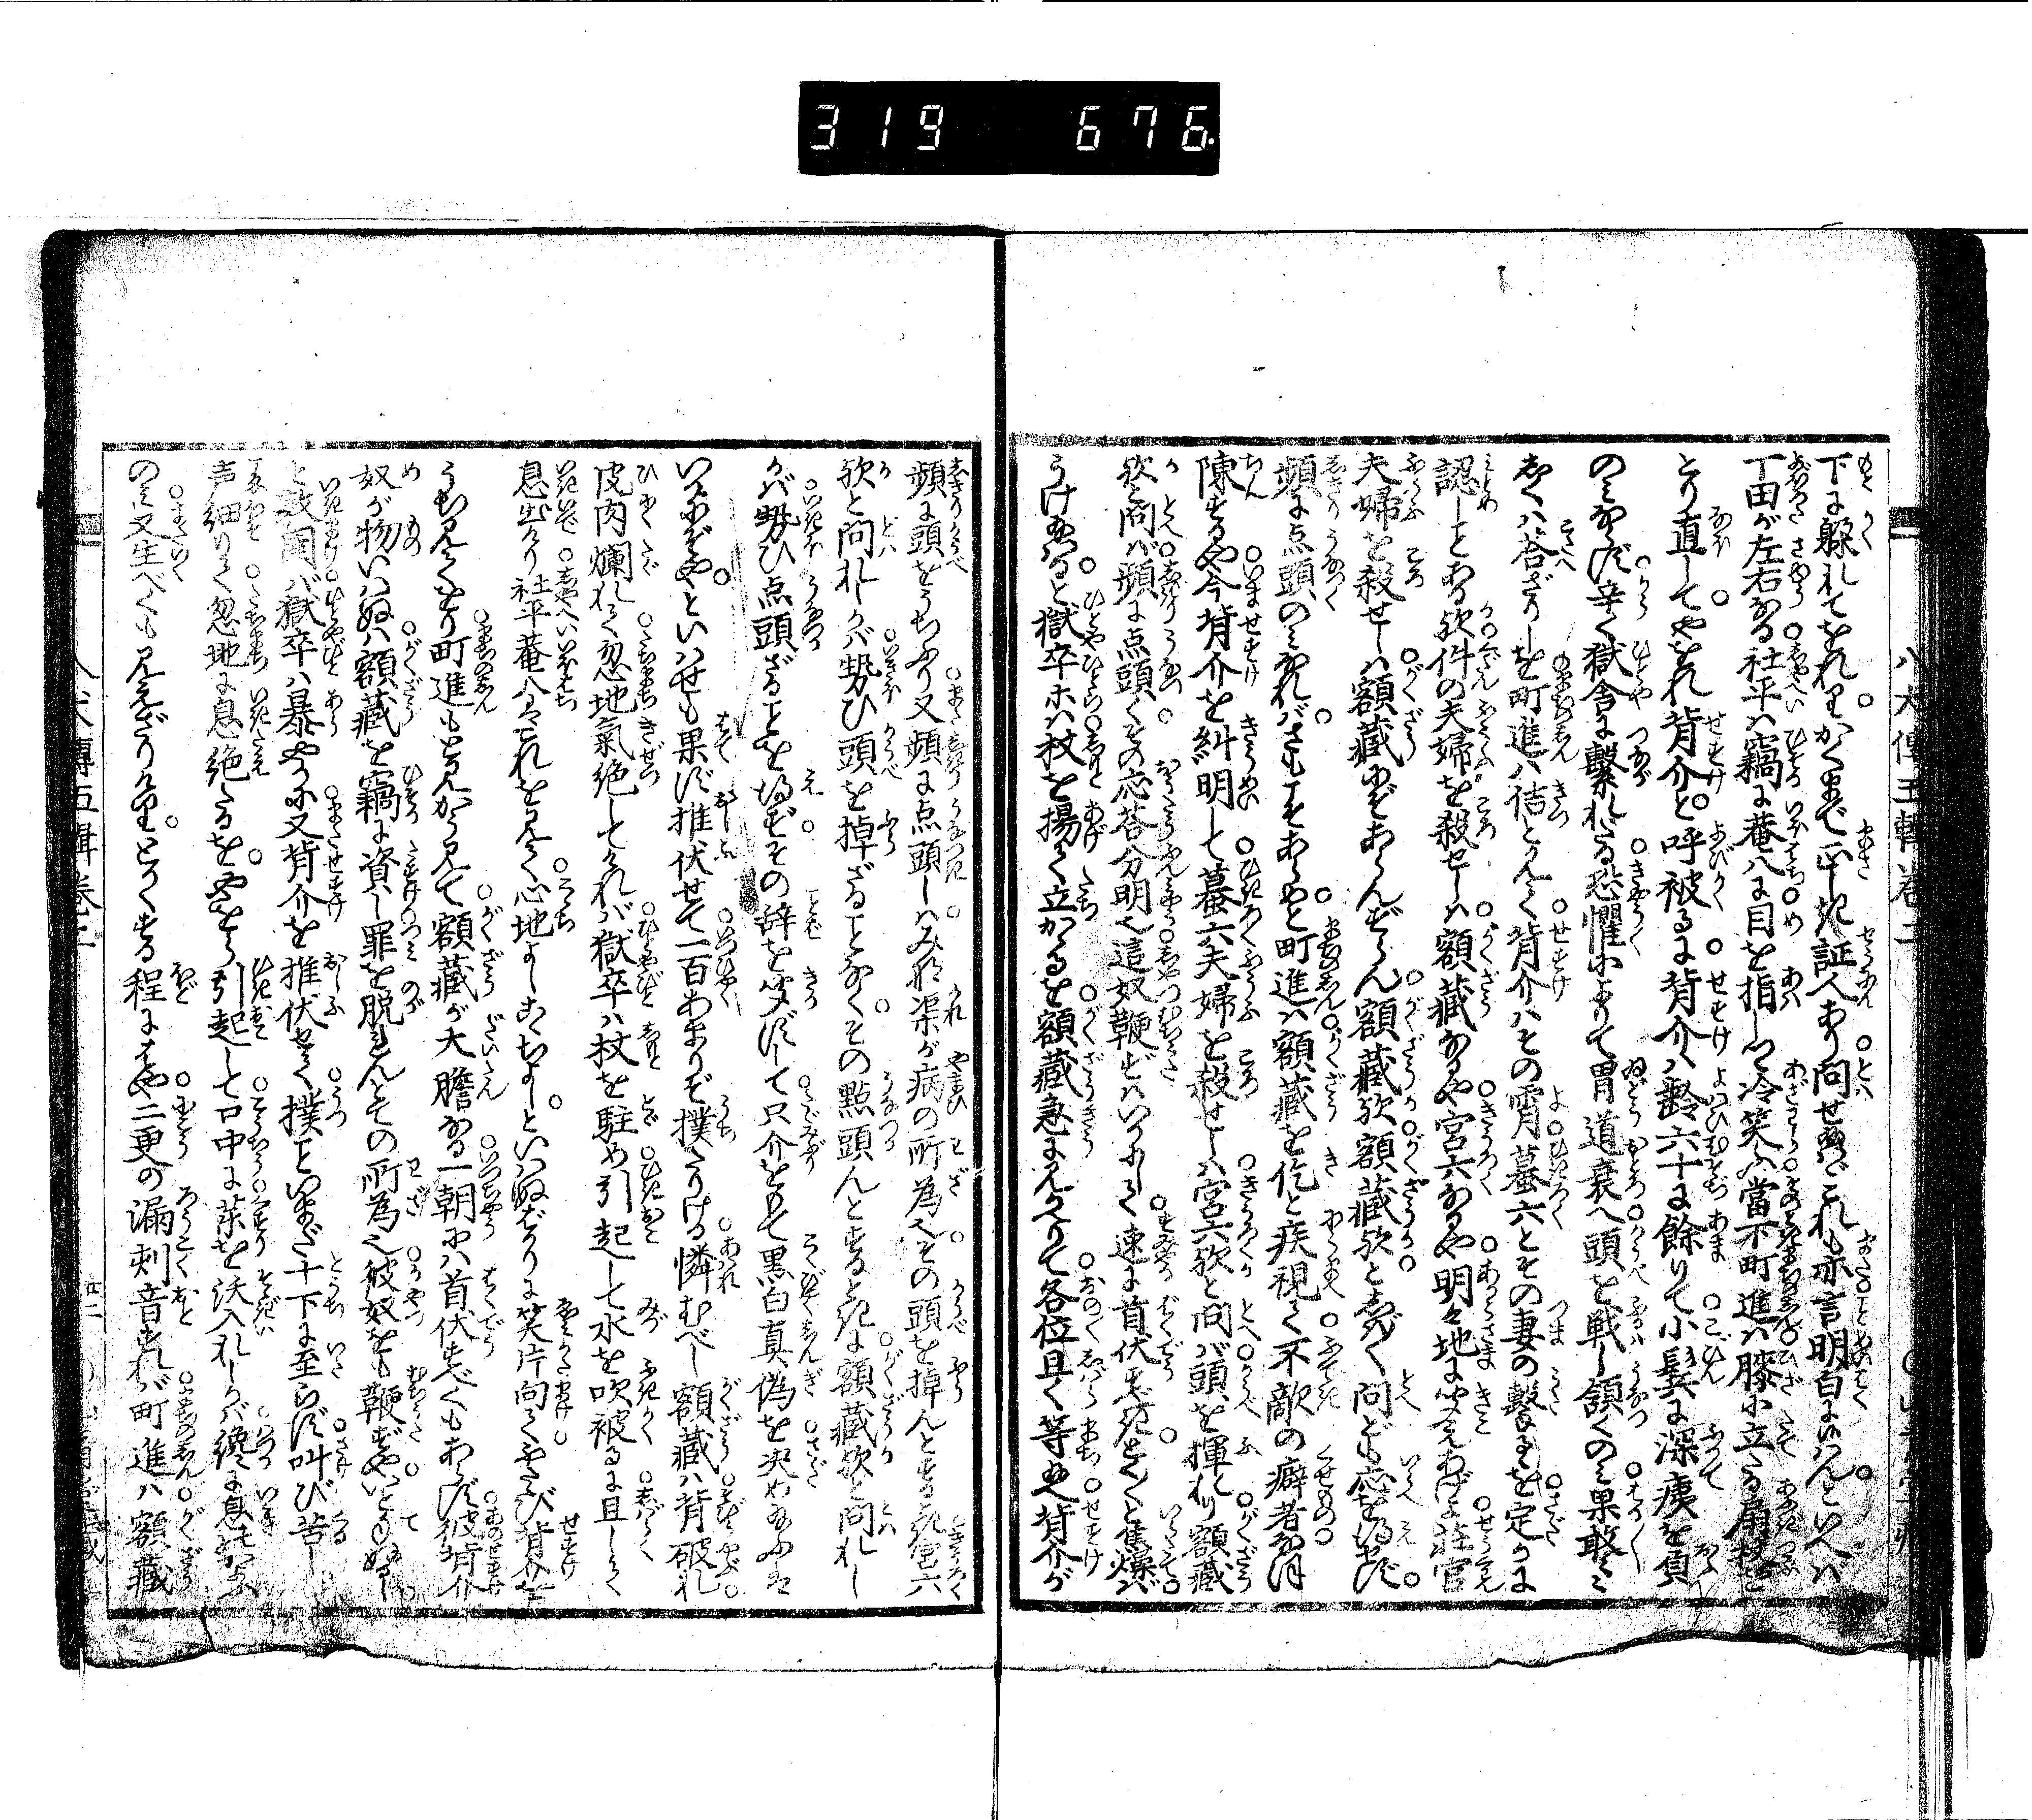 319 676
八犬傳五輯卷二
下に躱れてをれり。かくまで正しき証人あり問せ給はゞこれも亦言明白に候はんといへば
丁田が左右なる社平は竊に菴八に目を指しつ冷笑ふ當下町進は膝に立たる扇杖を
とり直してやをれ背介と呼被るに背介は齡六十に餘りて小鬢に深痍を負
のみならず辛く獄舎に繋れたる恐懼によりて胃道衰へ頭を戦し頷くのみ果敢々々
しくは答ざりしを町進は佶と見て背介はその宵蟇六とその妻の
認しことある欤件の夫婦を殺せしは額藏なるや宮六なるや明々地に聞えあげよ莊官
夫婦を殺せしは額藏にぞあらんずらん額藏欤額藏欤としば〳〵問ども応を得ず。
頻に点頭のみなればさもこそあらめと町進は額藏を佶と疾視て不敵の癖者なほ
陳ずるや今背介を糾明して蟇六夫婦を殺せしは宮六欤と問ば頭を揮れり額藏
欤と問ば頻に点頭くその応答分明也這奴鞭ずはいかにして速に首伏すべきとく〳〵と焦燥ば
うけ給はると獄卒等は杖を揚て立かゝるを額藏急に見かへりて各位且く等給へ背介が
頻に頭をうちふり又頻に点頭しはみな渠が病の所為也その頭を掉んとするとき宮六
欤と問れしかば勢ひ頭を掉ざることなくその點頭んとするときに額藏欤と問れし
かば勢ひ点頭ざることを得ずその辞を聞ずして只介をもて黒白真偽を决め給ふは
いかにぞやといはせも果ず推伏せて一百あまりぞ撲たりける憐むべし額藏は背破れ
皮肉爛れて忽地氣絶してければ獄卒は杖を駐め引起して水を吹被るに且しして
息出けり社平菴八これを見て心地よしこゝちよしといはぬばかりに笑片向てふたゝび背介を
うち見てをり町進もと見かう見て額藏が大膽なる一朝には首伏すべくもあらず彼背介
奴が物いはぬは額藏を竊に資し罪を脱れんとその所為也彼奴をも鞭ずやいと手ぬるし
と敦圉ば獄卒は暴やかに又背介を推伏せて撲こといまだ十下に至らず叫び苦しむ
声細りて忽地に息絶たるをやをら引起して口中に藥を沃入れしかば纔に息は出かよふ
のみ又生べくも見えざりけり。とかくする程にはや二更の漏刻音すれば町進は額藏